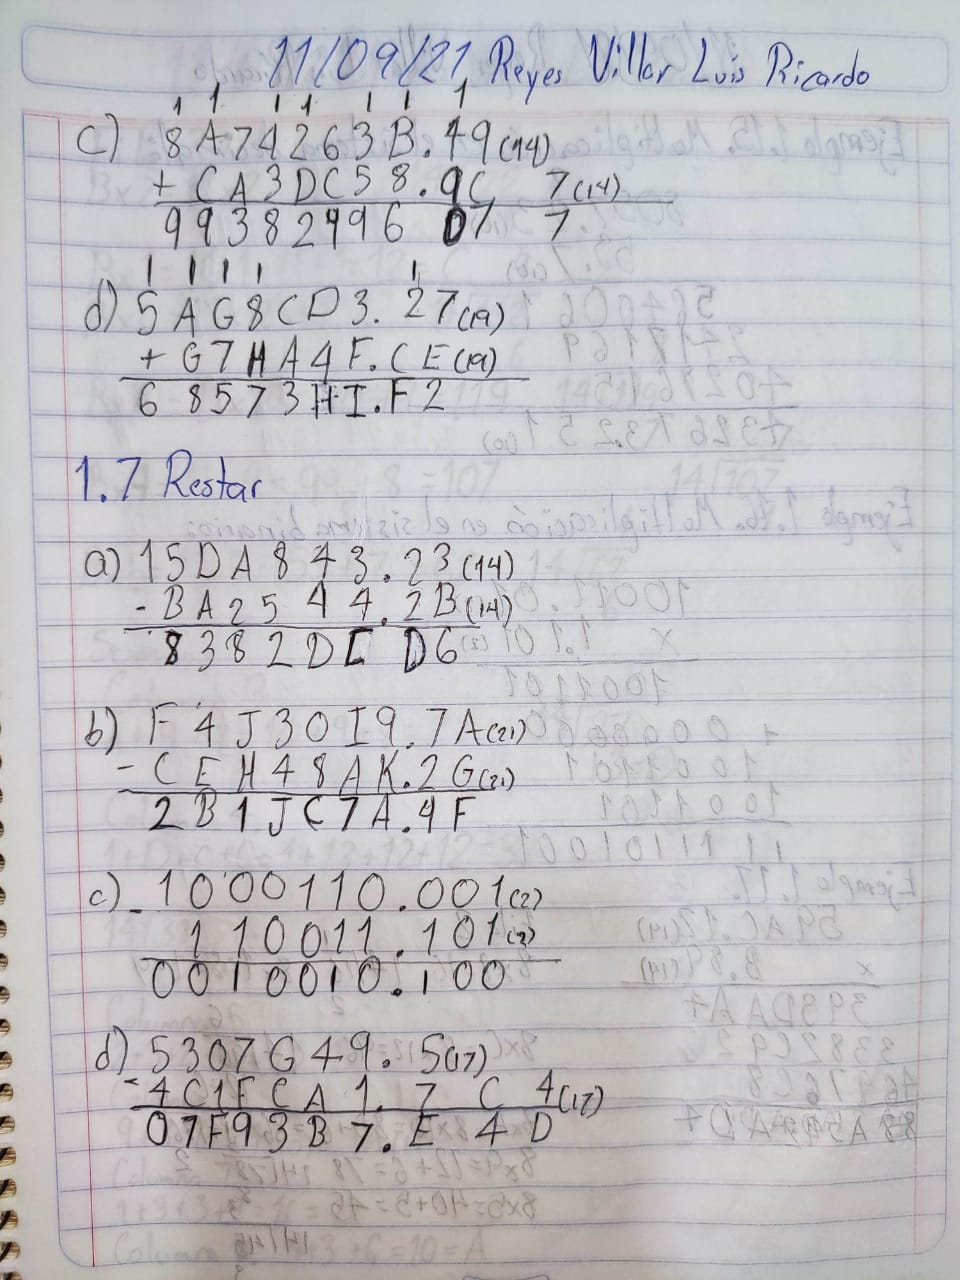 11/09/21 Reyes Villar Luis Ricardo
1 1 1 1 1 1 1
c) 8A74263B.49(14)
+ CA3DC58.9C 7(14)
99382496 07 7
1 1 1 1 1
d) 5AG8CD3.27(19)
+ G7HA4F.CE(19)
68573HI.F2
1.7 Restar
a) 15DA843.23(14)
- BA2544.2B(14)
8382DC D6
b) F4J30I9.7A(21)
- CEH48AK.2G(21)
2B1JC7A.4F
c) 1000110.001(2)
- 110011.101(2)
0010010.100
d) 5307G49.5(17)
- 4C1FCA1.7C4(17)
07F93B7.E4D